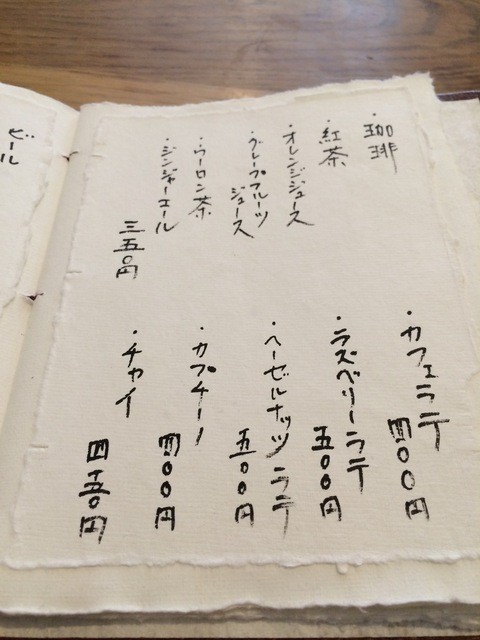 ・珈琲
・紅茶
・オレンジジュース
・グレープフルーツ
ジュース
・ウーロン茶
・ジンジャーエール
三五〇円
・カフェラテ
四〇〇円
・ラズベリーラテ
五〇〇円
・ヘーゼルナッツラテ
五〇〇円
・カプチーノ
四〇〇円
・チャイ
四五〇円
ビール